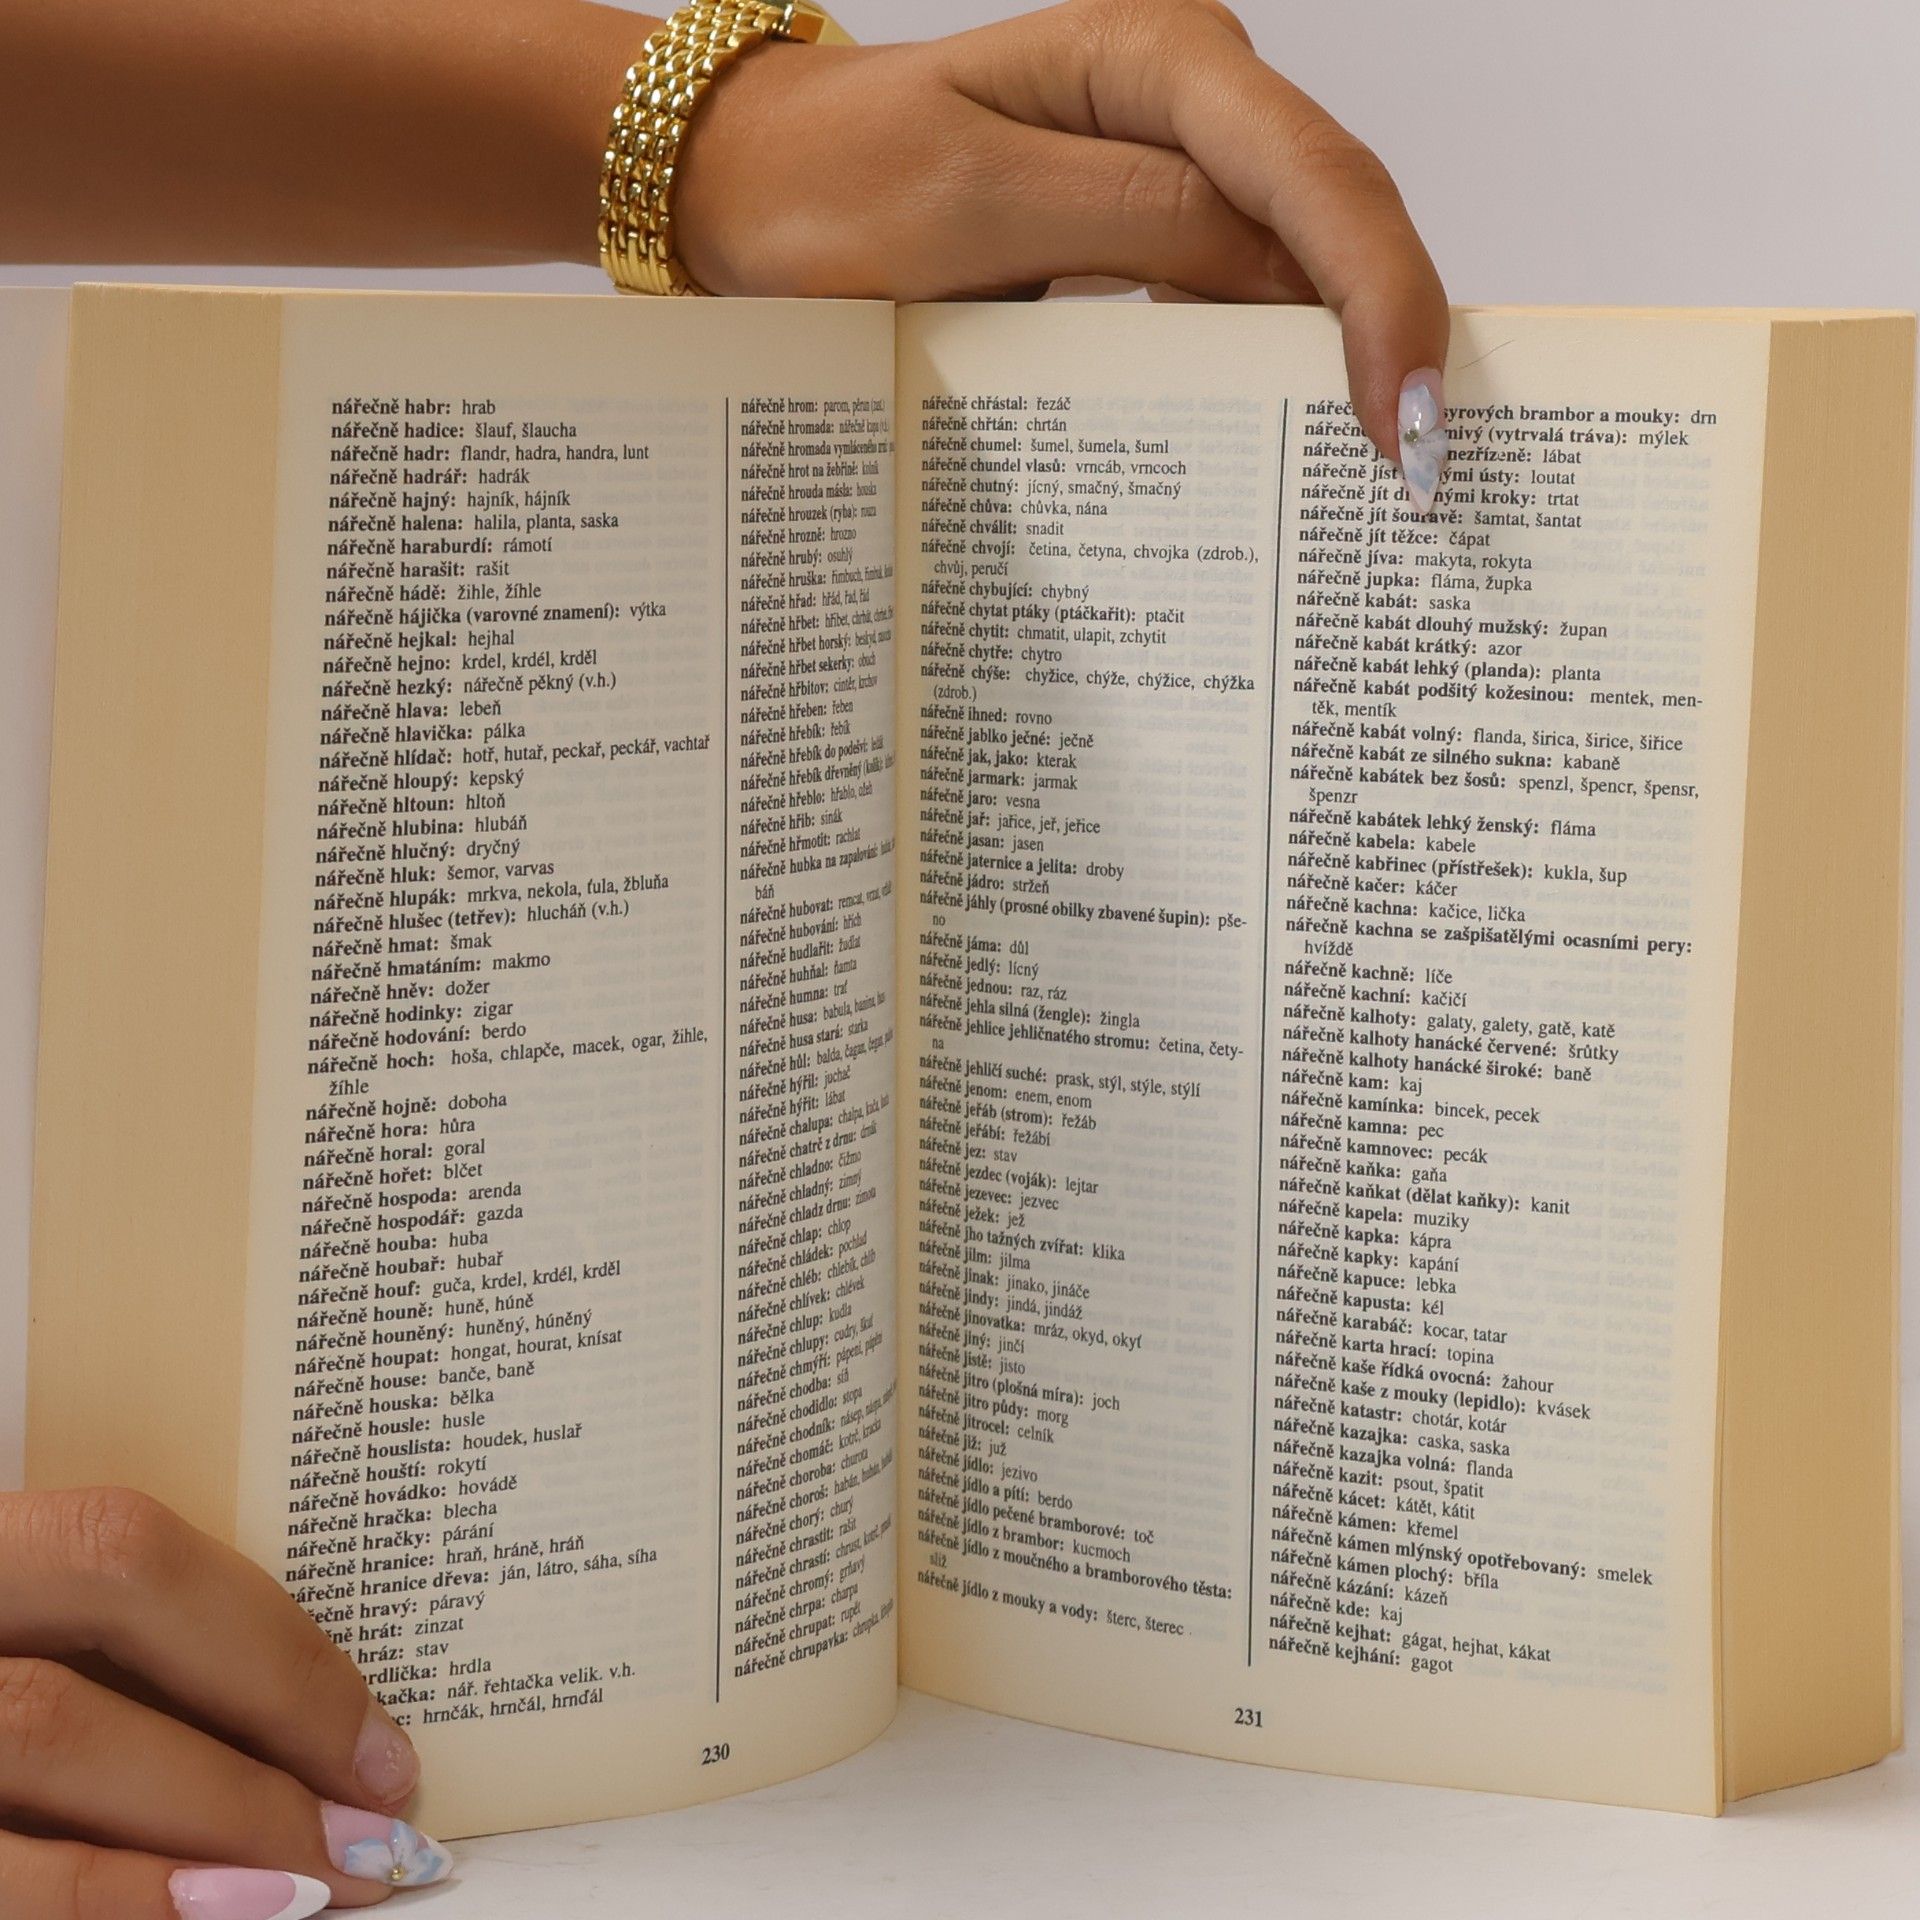 nářečně habr: hrab
nářečně hadice: šlauf, šlaucha
nářečně hadr: flandr, hadra, handra, lunt
nářečně hadrář: hadrák
nářečně hajný: hajník, hájník
nářečně halena: halila, planta, saska
nářečně haraburdí: rámotí
nářečně harašit: rašit
nářečně hádě: žihle, žíhle
nářečně hájička (varovné znamení): výtka
nářečně hejkal: hejhal
nářečně hejno: krdel, krdél, krděl
nářečně hezký: nářečně pěkný (v.h.)
nářečně hlava: lebeň
nářečně hlavička: pálka
nářečně hlídač: hotř, hutař, peckař, peckář, vachtař
nářečně hloupý: kepský
nářečně hltoun: hltoň
nářečně hlubina: hlubáň
nářečně hlučný: dryčný
nářečně hluk: šemor, varvas
nářečně hlupák: mrkva, nekola, ťula, žbluňa
nářečně hlušec (tetřev): hlucháň (v.h.)
nářečně hmat: šmak
nářečně hmatáním: makmo
nářečně hněv: dožer
nářečně hodinky: zigar
nářečně hodování: berdo
nářečně hoch: hoša, chlapče, macek, ogar, žihle,
žíhle
nářečně hojně: doboha
nářečně hora: hůra
nářečně horal: goral
nářečně hořet: blčet
nářečně hospoda: arenda
nářečně hospodář: gazda
nářečně houba: huba
nářečně houbař: hubař
nářečně houf: guča, krdel, krdél, krděl
nářečně houně: huně, húně
nářečně houněný: huněný, húněný
nářečně houpat: hongat, hourat, knísat
nářečně house: banče, baně
nářečně houska: bělka
nářečně housle: husle
nářečně houslista: houdek, huslař
nářečně houští: rokytí
nářečně hovádko: hovádě
nářečně hračka: blecha
nářečně hračky: párání
nářečně hranice: hraň, hráně, hráň
nářečně hranice dřeva: ján, látro, sáha, síha
hravý: páravý
hrát: zinzat
hráz: stav
hrdla
nář. řehtačka velik. v.h.
hrnčák, hrnčál, hrnďál
230
nářečně hrom: parom, pérun
nářečně hromada: nářečně kupa
nářečně hromada vymláceného
nářečně hrot na žebřině: kolník
nářečně hrouda másla: houska
nářečně hrouzek (ryba):
nářečně hrozně: hrozno
nářečně hrubý: osuhlý
nářečně hruška:
nářečně hřad: hřád, řad, řád
nářečně hřbet: hřibet,
nářečně hřbet horský: beskyd,
nářečně hřbet sekerky: obuch
nářečně hřbitov: cintér, krchov
nářečně hřeben: řeben
nářečně hřebík: řebík
nářečně hřebík do podešví:
nářečně hřebík dřevněný (kolík):
nářečně hřeblo: hřablo, ožeh
nářečně hřib: sinák
nářečně hřmotit: rachlat
nářečně hubka na zapalování:
báň
nářečně hubovat: remcat,
nářečně hubování: hřích
nářečně hudlařit: žudlat
nářečně huhňal: ňamta
nářečně humna: trať
nářečně husa: babula,
nářečně husa stará: starka
nářečně hůl: balda, čagan,
nářečně hýřil: juchač
nářečně hýřit: lábat
nářečně chalupa: chalpa,
nářečně chatrč z drnu:
nářečně chladno: čižmo
nářečně chladný: zimný
nářečně chladz drnu:
nářečně chlap: chlop
nářečně chládek: pochlad
nářečně chléb: chlebík, chlíb
nářečně chlívek: chlévek
nářečně chlup: kudla
nářečně chlupy: cudry,
nářečně chmýří: pápení,
nářečně chodba: síň
nářečně chodidlo: stopa
nářečně chodník: násep,
nářečně chomáč: kotrč,
nářečně choroba: churota
nářečně choroš: habán,
nářečně chorý: churý
nářečně chrastit: rašit
nářečně chrastí: chrust,
nářečně chromý: grňavý
nářečně chrpa: charpa
nářečně chrupat: rupět
nářečně chrupavka: chrupka,
nářečně chřástal: řezáč
nářečně chřtán: chrtán
nářečně chumel: šumel, šumela, šuml
nářečně chundel vlasů: vrncáb, vrncoch
nářečně chutný: jícný, smačný, šmačný
nářečně chůva: chůvka, nána
nářečně chválit: snadit
nářečně chvojí: četina, četyna, chvojka (zdrob.),
chvůj, peručí
nářečně chybující: chybný
nářečně chytat ptáky (ptáčkařit): ptačit
nářečně chytit: chmatit, ulapit, zchytit
nářečně chytře: chytro
nářečně chýše: chyžice, chýže, chýžice, chýžka
(zdrob.)
nářečně ihned: rovno
nářečně jablko ječné: ječně
nářečně jak, jako: kterak
nářečně jarmark: jarmak
nářečně jaro: vesna
nářečně jař: jařice, jeř, jeřice
nářečně jasan: jasen
nářečně jaternice a jelita: droby
nářečně jádro: stržeň
nářečně jáhly (prosné obilky zbavené šupin): pše-
no
nářečně jáma: důl
nářečně jedlý: lícný
nářečně jednou: raz, ráz
nářečně jehla silná (žengle): žingla
nářečně jehlice jehličnatého stromu: četina, čety-
na
nářečně jehličí suché: prask, stýl, stýle, stýlí
nářečně jenom: enem, enom
nářečně jeřáb (strom): řežáb
nářečně jeřábí: řežábí
nářečně jez: stav
nářečně jezdec (voják): lejtar
nářečně jezevec: jezvec
nářečně ježek: jež
nářečně jho tažných zvířat: klika
nářečně jilm: jilma
nářečně jinak: jinako, jináče
nářečně jindy: jindá, jindáž
nářečně jinovatka: mráz, okyd, okyť
nářečně jiný: jinčí
nářečně jistě: jisto
nářečně jitro (plošná míra): joch
nářečně jitro půdy: morg
nářečně jitrocel: celník
nářečně již: juž
nářečně jídlo: jezivo
nářečně jídlo a pití: berdo
nářečně jídlo pečené bramborové: toč
nářečně jídlo z brambor: kucmoch
nářečně jídlo z moučného a bramborového těsta:
sliž
nářečně jídlo z mouky a vody: šterc, šterec
syrových brambor a mouky: drn
(vytrvalá tráva): mýlek
nezřízeně: lábat
nářečně jíst ústy: loutat
nářečně jít kroky: trtat
nářečně jít šouravě: šamtat, šantat
nářečně jít těžce: čápat
nářečně jíva: makyta, rokyta
nářečně jupka: fláma, župka
nářečně kabát: saska
nářečně kabát dlouhý mužský: župan
nářečně kabát krátký: azor
nářečně kabát lehký (planda): planta
nářečně kabát podšitý kožesinou: mentek, men-
těk, mentík
nářečně kabát volný: flanda, širica, širice, šiřice
nářečně kabát ze silného sukna: kabaně
nářečně kabátek bez šosů: spenzl, špencr, špensr,
špenzr
nářečně kabátek lehký ženský: fláma
nářečně kabela: kabele
nářečně kabřinec (přístřešek): kukla, šup
nářečně kačer: káčer
nářečně kachna: kačice, lička
nářečně kachna se zašpišatělými ocasními pery:
hvíždě
nářečně kachně: líče
nářečně kachní: kačičí
nářečně kalhoty: galaty, galety, gatě, katě
nářečně kalhoty hanácké červené: šrůtky
nářečně kalhoty hanácké široké: baně
nářečně kam: kaj
nářečně kamínka: bincek, pecek
nářečně kamna: pec
nářečně kamnovec: pecák
nářečně kaňka: gaňa
nářečně kaňkat (dělat kaňky): kanit
nářečně kapela: muziky
nářečně kapka: kápra
nářečně kapky: kapání
nářečně kapuce: lebka
nářečně kapusta: kél
nářečně karabáč: kocar, tatar
nářečně karta hrací: topina
nářečně kaše řídká ovocná: žahour
nářečně kaše z mouky (lepidlo): kvásek
nářečně katastr: chotár, kotár
nářečně kazajka: caska, saska
nářečně kazajka volná: flanda
nářečně kazit: psout, špatit
nářečně kácet: kátět, kátit
nářečně kámen: křemel
nářečně kámen mlýnský opotřebovaný: smelek
nářečně kámen plochý: bříla
nářečně kázání: kázeň
nářečně kde: kaj
nářečně kejhat: gágat, hejhat, kákat
nářečně kejhání: gagot
231